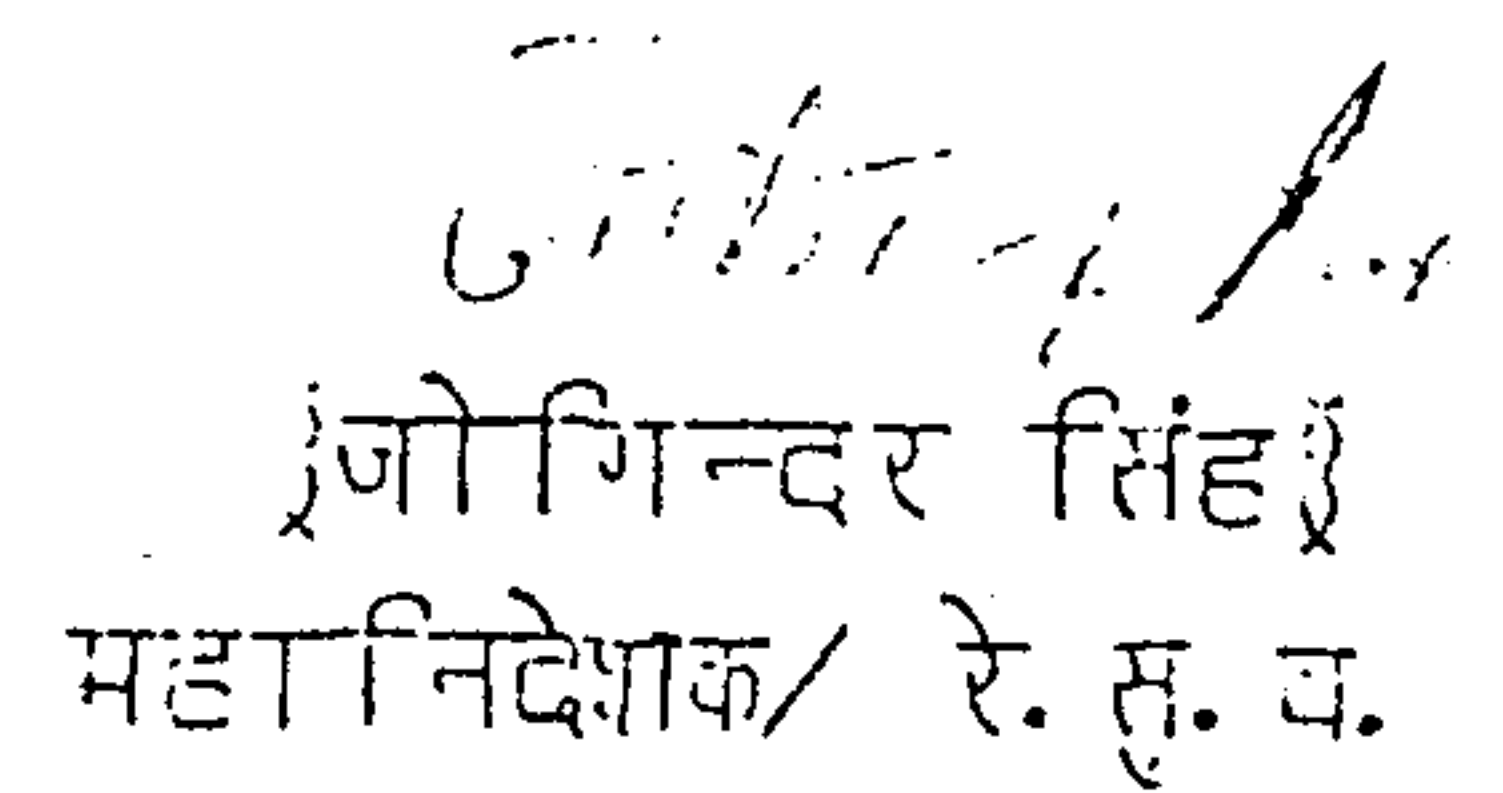 (जोगिन्दर सिंह)
महानिदेशक/ रे. सु. ब.